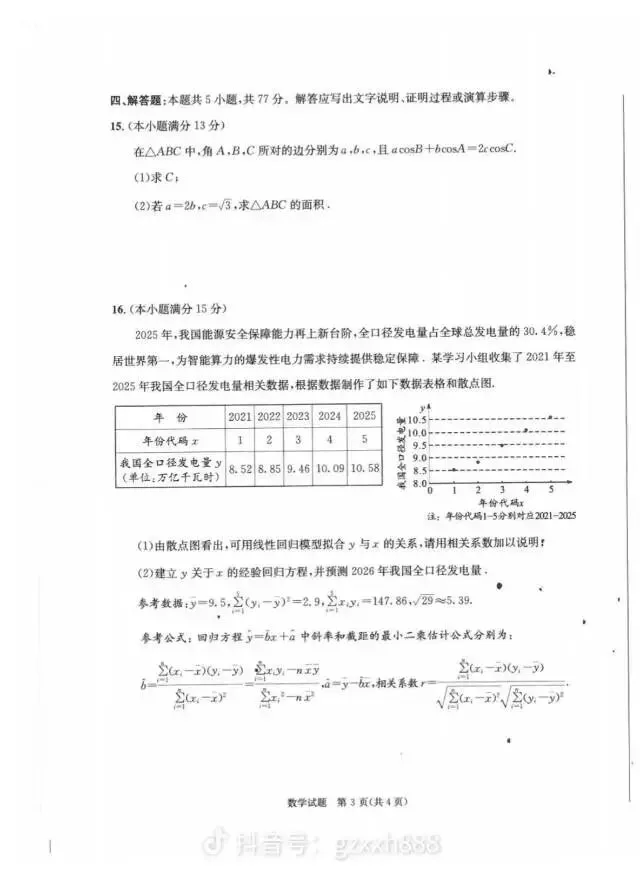 四、解答题:本题共5小题,共77分。解答应写出文字说明、证明过程或演算步骤。
15.(本小题满分13分)
在△ABC中,角A,B,C所对的边分别为a,b,c,且acosB+bcosA=2ccosC.
(1)求C;
(2)若a=2b,c=√3,求△ABC的面积.
16.(本小题满分15分)
2025年,我国能源安全保障能力再上新台阶,全口径发电量占全球总发电量的30.4%,稳
居世界第一,为智能算力的爆发性电力需求持续提供稳定保障.某学习小组收集了2021年至
2025年我国全口径发电量相关数据,根据数据制作了如下数据表格和散点图.
年 份 2021 2022 2023 2024 2025
年份代码x 1 2 3 4 5
我国全口径发电量y
(单位:万亿千瓦时) 8.52 8.85 9.46 10.09 10.58
y
我国全口径发电量
10.5
10.0
9.5
9.0
8.5
8.0
0 1 2 3 4 5
年份代码x
注:年份代码1-5分别对应2021-2025
(1)由散点图看出,可用线性回归模型拟合y与x的关系,请用相关系数加以说明;
(2)建立y关于x的经验回归方程,并预测2026年我国全口径发电量.
参考数据:ȳ=9.5,∑_{i=1}^{5}(y_i-ȳ)²=2.9,∑_{i=1}^{5}x_iy_i=147.86,√29≈5.39.
参考公式:回归方程ŷ=b̂x+â中斜率和截距的最小二乘估计公式分别为:
b̂=∑_{i=1}^{n}(x_i-x̄)(y_i-ȳ)/∑_{i=1}^{n}(x_i-x̄)²=(∑_{i=1}^{n}x_iy_i-nx̄ȳ)/(∑_{i=1}^{n}x_i²-nx̄²),â=ȳ-b̂x̄,相关系数r=∑_{i=1}^{n}(x_i-x̄)(y_i-ȳ)/(√∑_{i=1}^{n}(x_i-x̄)²√∑_{i=1}^{n}(y_i-ȳ)²).
数学试题 第3页(共4页)
抖音号:gzxxh888